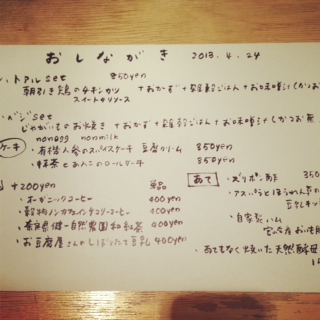 おしながき 2013.4.24
set 850yen
朝引き鶏のチキンカツ +おかず+雑穀ごはん+お味噌汁(かつお
スイートチリソース
ベジset
じゃがいものお焼き +おかず+雑穀ごはん+お味噌汁(かつお
nonegg nonmilk
ケーキ ・有機人参のスパイスケーキ 豆腐クリーム 350yen
・抹茶とあんこのロールケーキ 350yen
+200yen 単品
・オーガニックコーヒー 400yen
・穀物ノンカフェインチコリコーヒー 400yen
・奈良県健一自然農園和紅茶 400yen
・お豆腐屋さんのしぼりたて豆乳 400yen
あて ・ズリポン酢 350
・アスパラとほうれん草の
豆乳キッ
・自家製ハム
・あてもなく焼いた天然酵母